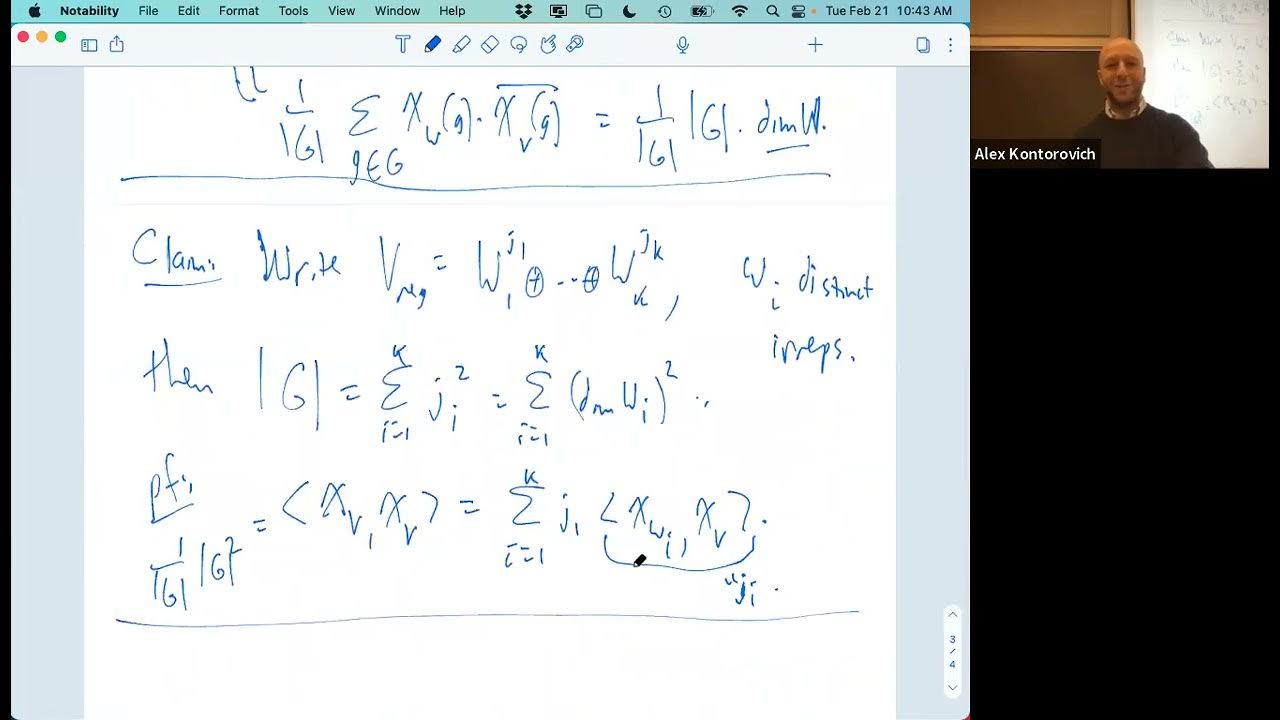 Notability File Edit Format Tools View Window Help Tue Feb 21 10:43 AM
Alex Kontorovich
1/|G| Σ_{g∈G} χ_W(g)·\overline{χ_V(g)} = 1/|G| |G|· dim W.
Claim: Write V_reg = W_1^{j_1} ⊕ ... ⊕ W_k^{j_k}, W_i distinct
irreps.
then |G| = Σ_{i=1}^k j_i^2 = Σ_{i=1}^k (dim W_i)^2.
pf:
1/|G| |G|^2 = <χ_V, χ_V> = Σ_{i=1}^k j_i <χ_{W_i}, χ_V>.
"j_i.
3
/
4